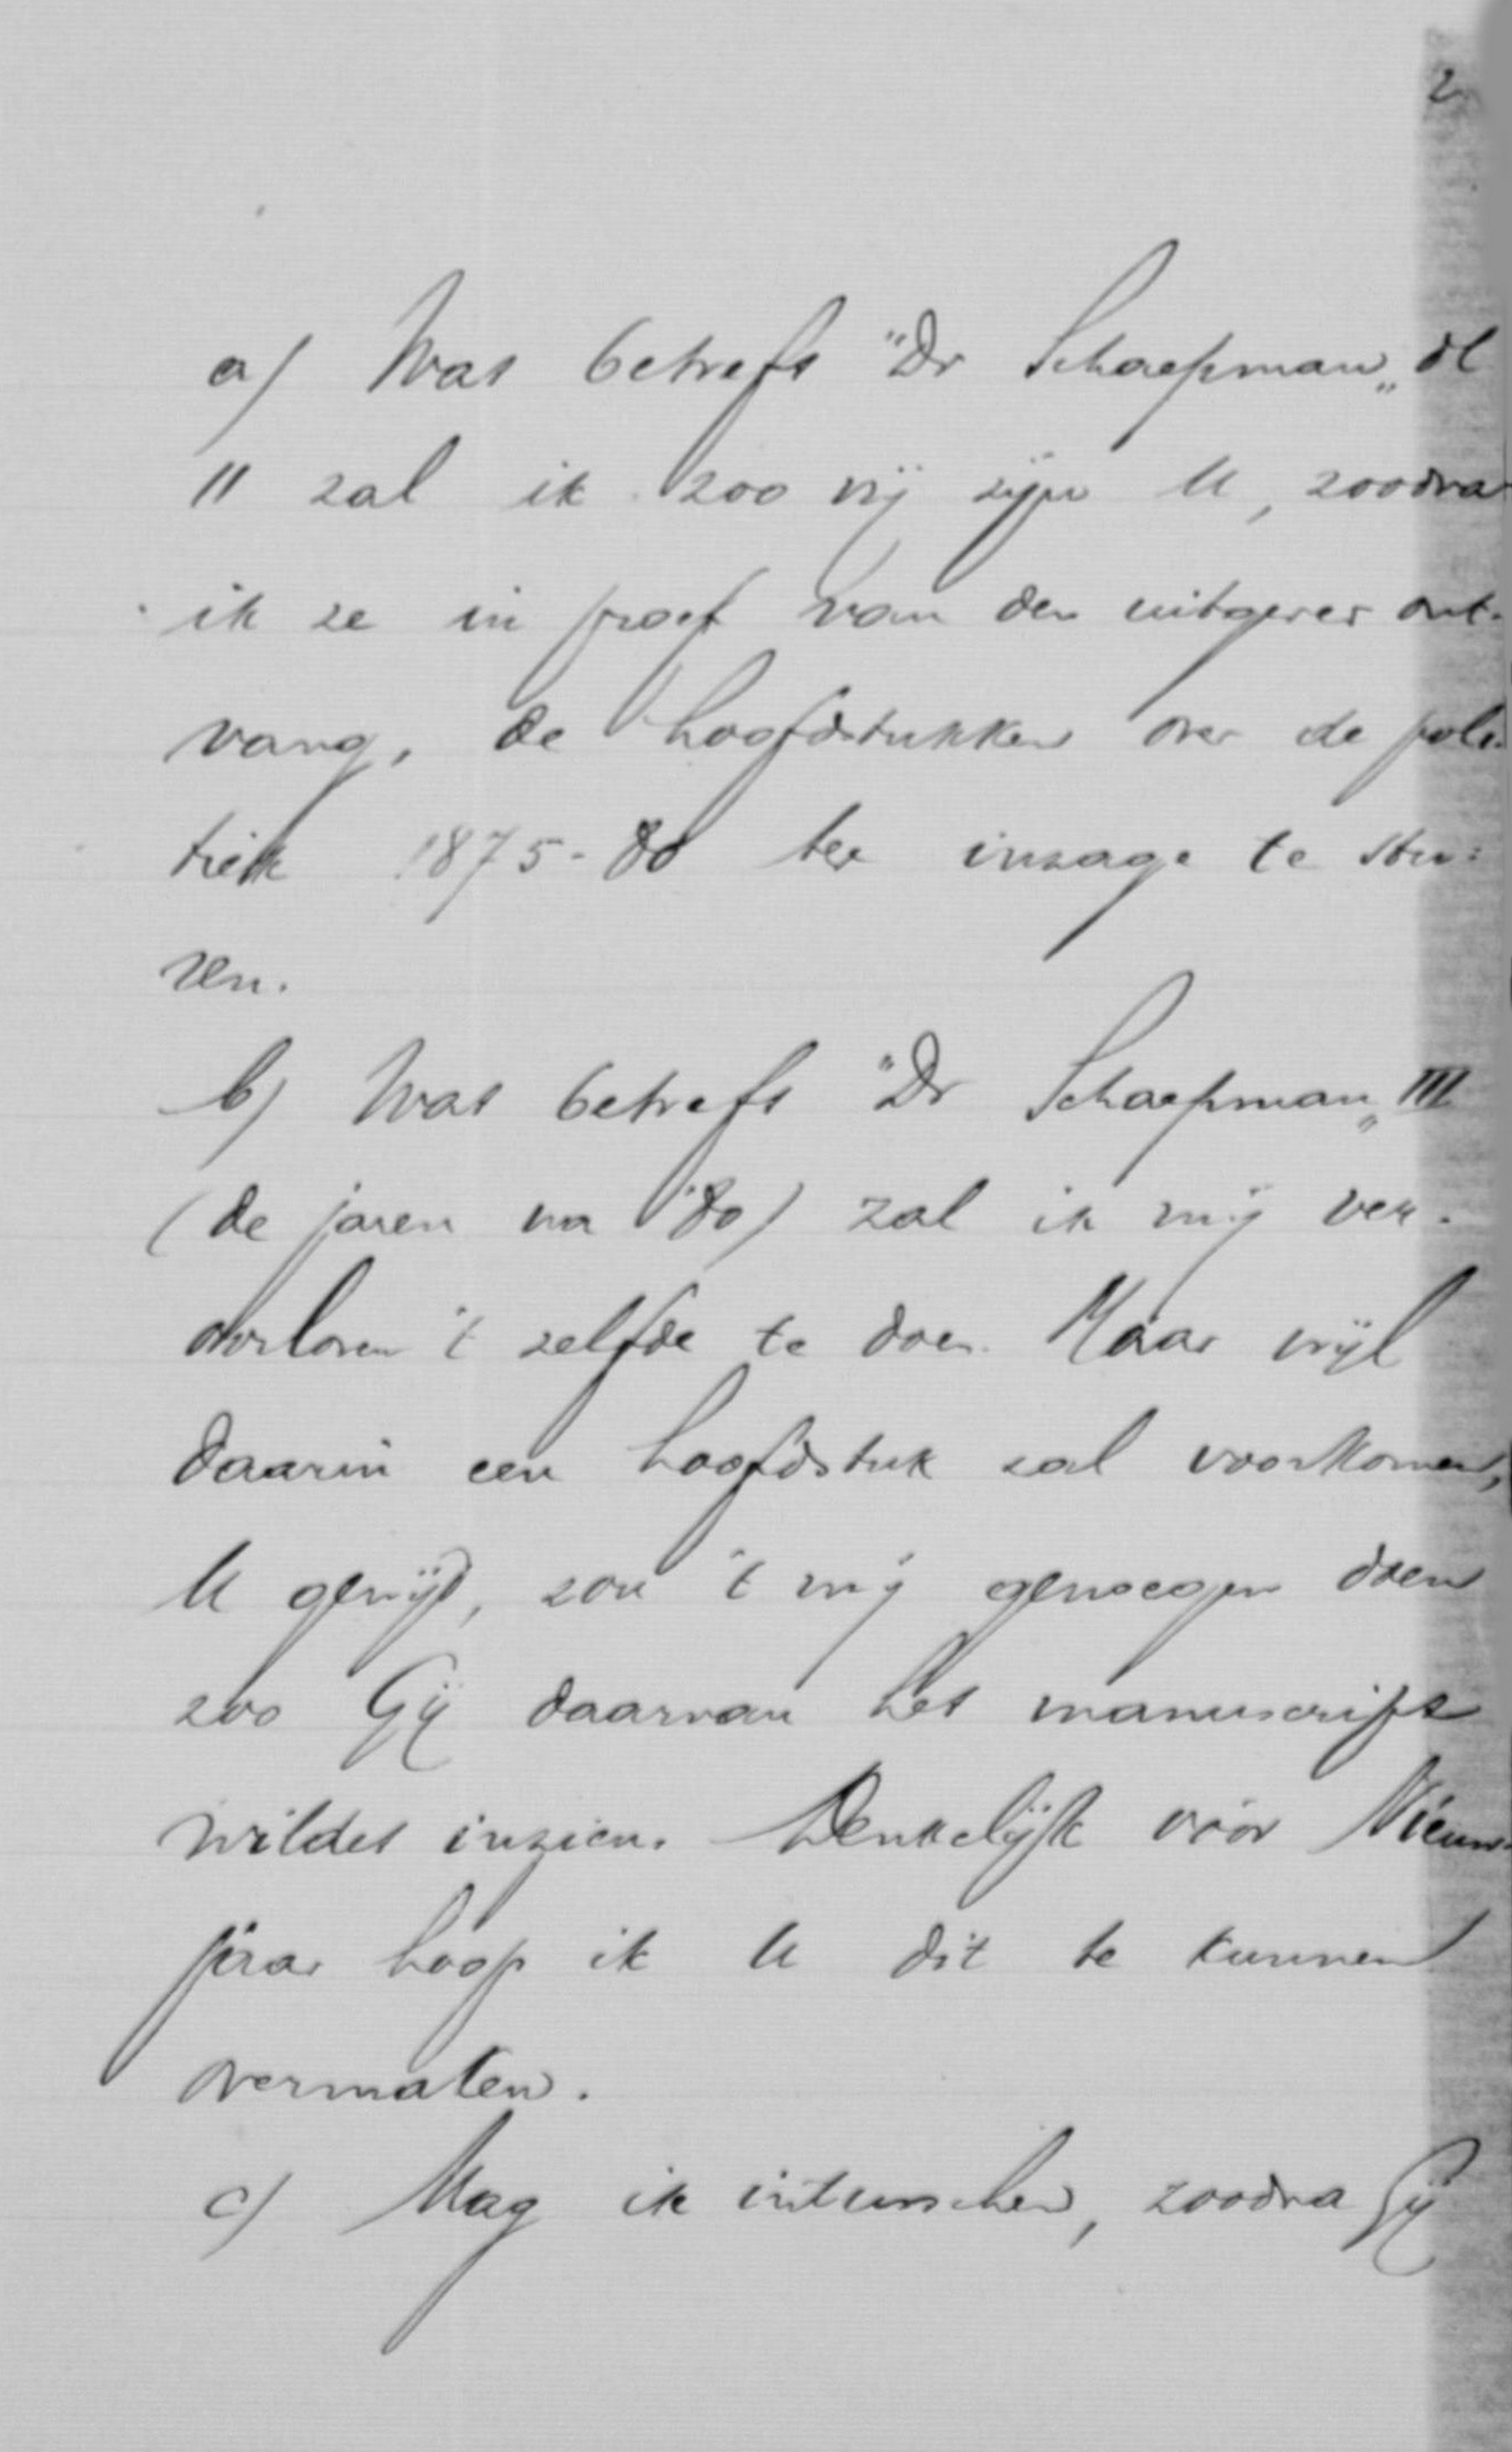 2
a) Wat betreft "Dr Schaepman„ dl
II zal ik zoo vrij zijn U, zoodra
ik ze in proef van den uitgever ont-
vang, de hoofdstukken over de poli-
tiek 1875-80 ter inzage te stu-
ren.
b) Wat betreft "Dr Schaepman„ III
(de jaren na '80) zal ik mij ver-
oorloven 't zelfde te doen. Maar wijl
daarin een hoofdstuk zal voorkomen,
U gewijd, zou 't mij genoegen doen
zoo Gij daarvan het manuscript
wildet inzien. Denkelijk vóór Nieuw-
jaar hoop ik U dit te kunnen
overmaken.
c) Mag ik intusschen, zoodra Gij